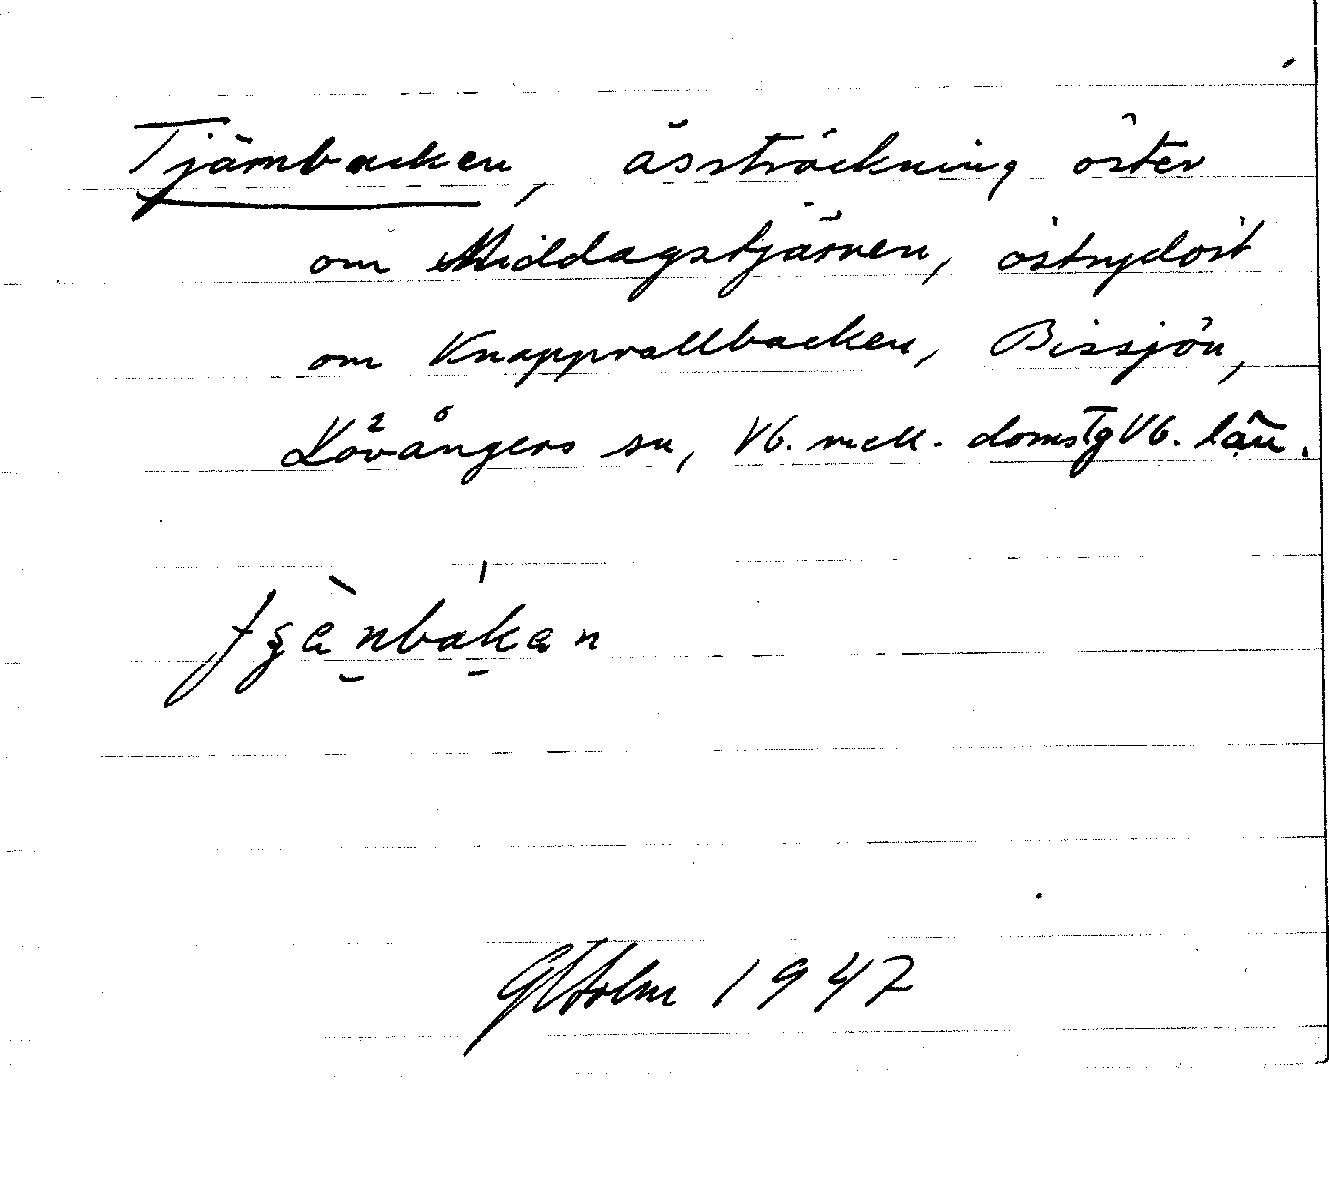 Tjärnbacken, åssträckning öster
om Middagstjärnen, östsydost
om Knappvallbacken, Bissjön,
Lövångers sn, Vb. mell. doms Tg Vb. län.
GHolm 1947